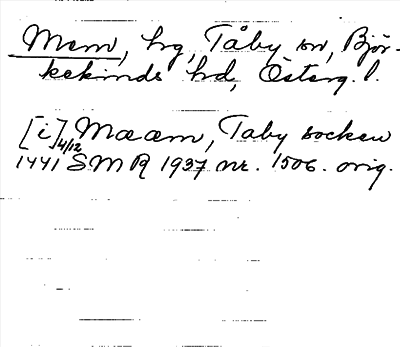 Mem, hg, Tåby sn, Björ-
kekinds hd, Österg. l.
[i] Mææm, Taby socken
1441 4/12 SMR 1937 nr. 1506. orig.